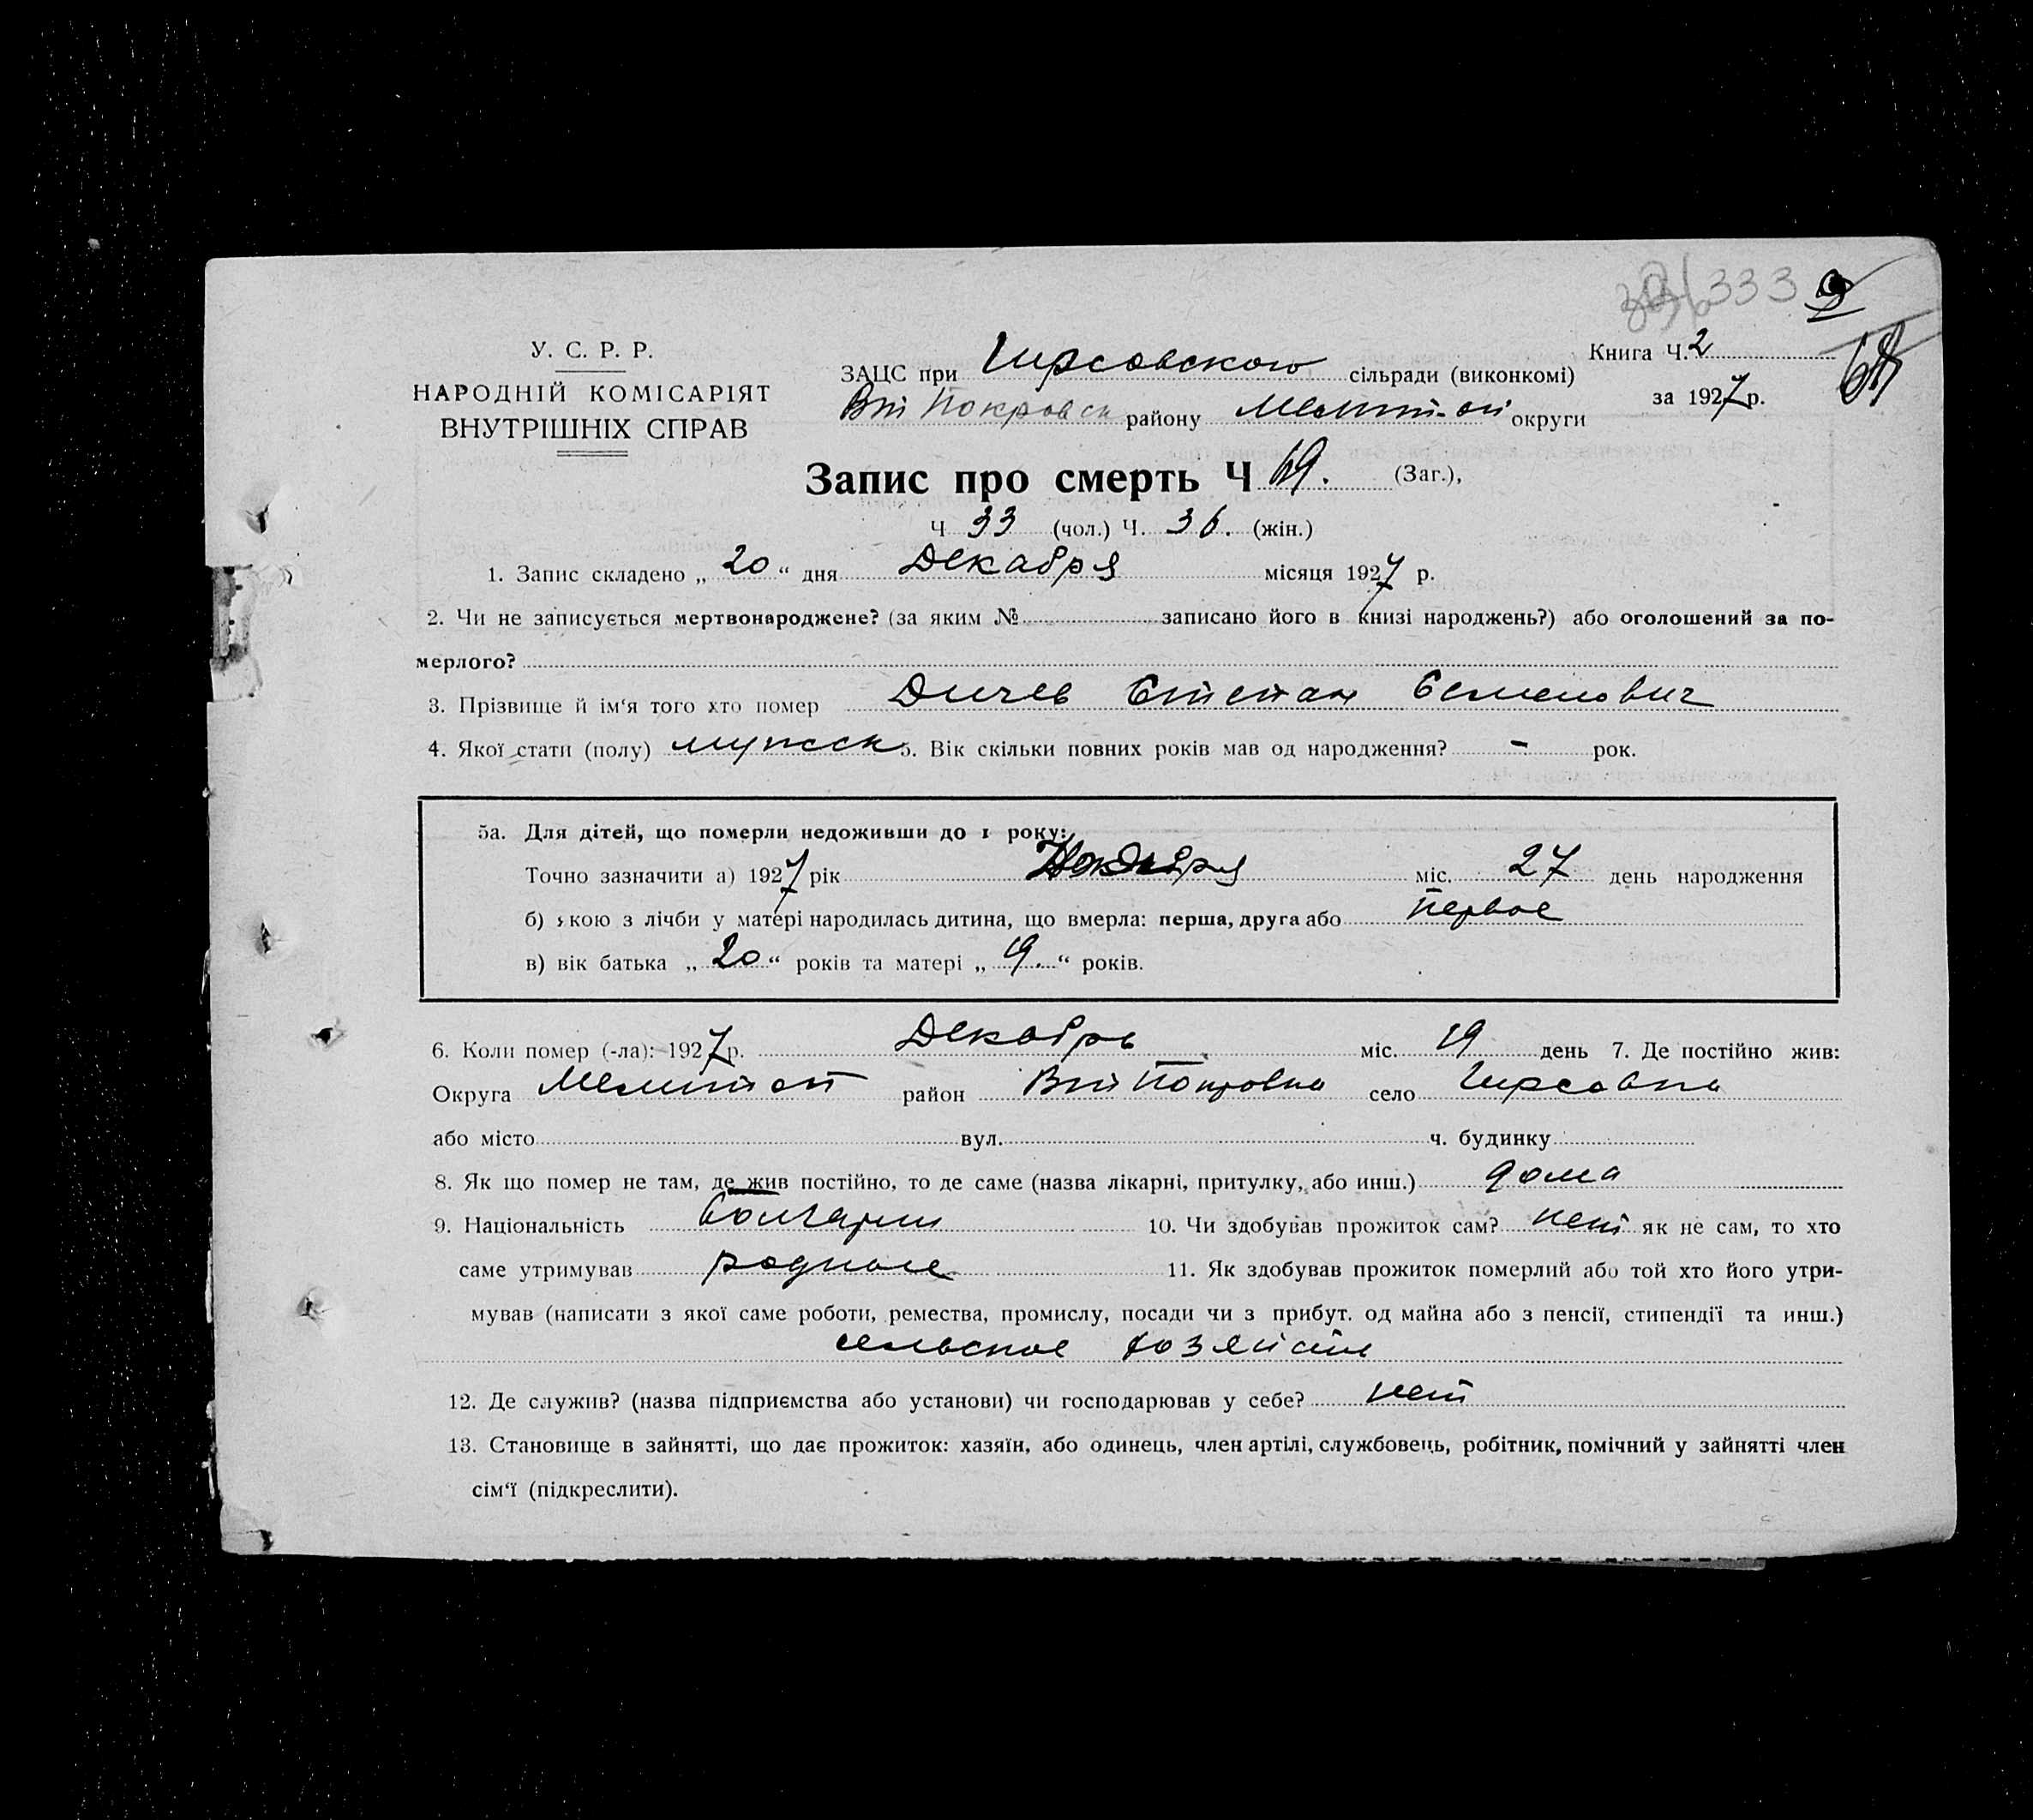 333
У. С. Р. Р.
НАРОДНІЙ КОМІСАРІЯТ
ВНУТРІШНІХ СПРАВ
ЗАЦС при Гирсовского сільради (виконкомі)
Покровск району Мелит-ой округи
Книга Ч. 2
за 1927 р.
Запис про смерть Ч 69. (Заг.),
Ч 33 (чол.) Ч. 36. (жін.)
1. Запис складено „ 20 “ дня Декабря місяця 1927 р.
2. Чи не записується мертвонароджене? (за яким № записано його в книзі народжень?) або оголошений за по-
мерлого?
3. Прізвище й ім‘я того хто помер Дичев Степан Семенович
4. Якої стати (полу) мужск 5. Вік скільки повних років мав од народження? - рок.
5а. Для дітей, що померли недоживши до 1 року:
Точно зазначити а) 1927 рік Ноября міс. 27 день народження
б) якою з лічби у матері народилась дитина, що вмерла: перша, друга або первое
в) вік батька „ 20 “ років та матері „ 19. “ років.
6. Коли помер (-ла): 1927 р. Декабрь міс. 19 день 7. Де постійно жив:
Округа Мелитоп район Покровка село Гирсовка
або місто вул. ч. будинку
8. Як що помер не там, де жив постійно, то де саме (назва лікарні, притулку, або инш.) дома
9. Національність болгарин 10. Чи здобував прожиток сам? нет як не сам, то хто
саме утримував 11. Як здобував прожиток померлий або той хто його утри-
мував (написати з якої саме роботи, ремества, промислу, посади чи з прибут. од майна або з пенсії, стипендії та инш.)
сельское хозяйств
12. Де служив? (назва підприємства або установи) чи господарював у себе? нет
13. Становище в зайнятті, що дає прожиток: хазяїн, або одинець, член артілі, службовець, робітник, помічний у зайнятті член
сім‘ї (підкреслити).